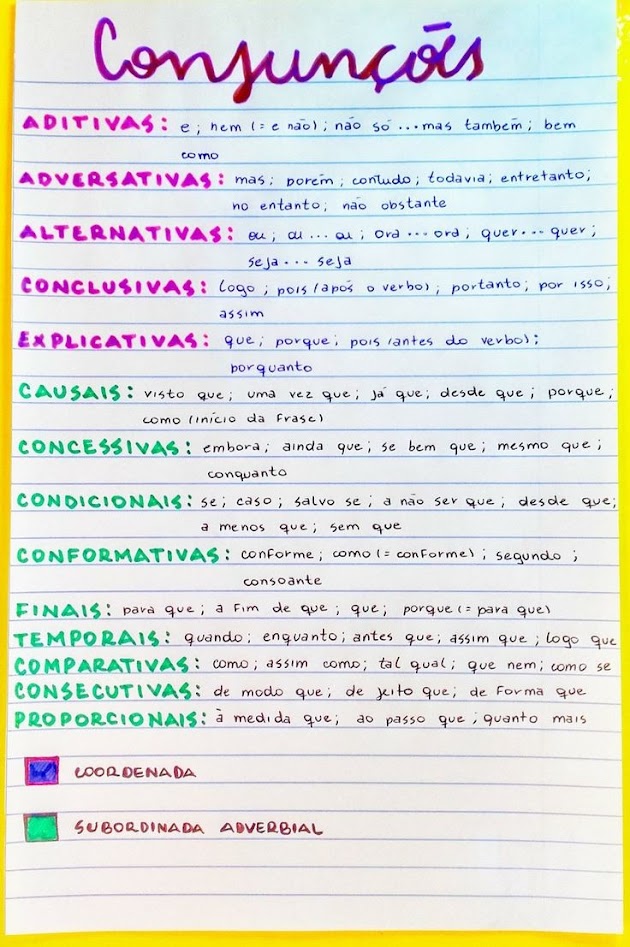 Conjunções
ADITIVAS: e; nem (= e não); não só ... mas também; bem
como
ADVERSATIVAS: mas; porém; contudo; todavia; entretanto;
no entanto; não obstante
ALTERNATIVAS: ou; ou ... ou; ora ... ora; quer ... quer;
seja ... seja
CONCLUSIVAS: logo; pois (após o verbo); portanto; por isso;
assim
EXPLICATIVAS: que; porque; pois (antes do verbo);
porquanto
CAUSAIS: visto que; uma vez que; já que; desde que; porque;
como (início da frase)
CONCESSIVAS: embora; ainda que; se bem que; mesmo que;
conquanto
CONDICIONAIS: se; caso; salvo se; a não ser que; desde que;
a menos que; sem que
CONFORMATIVAS: conforme; como (= conforme); segundo;
consoante
FINAIS: para que; a fim de que; que; porque (= para que)
TEMPORAIS: quando; enquanto; antes que; assim que; logo que
COMPARATIVAS: como; assim como; tal qual; que nem; como se
CONSECUTIVAS: de modo que; de jeito que; de forma que
PROPORCIONAIS: à medida que; ao passo que; quanto mais
COORDENADA
SUBORDINADA ADVERBIAL